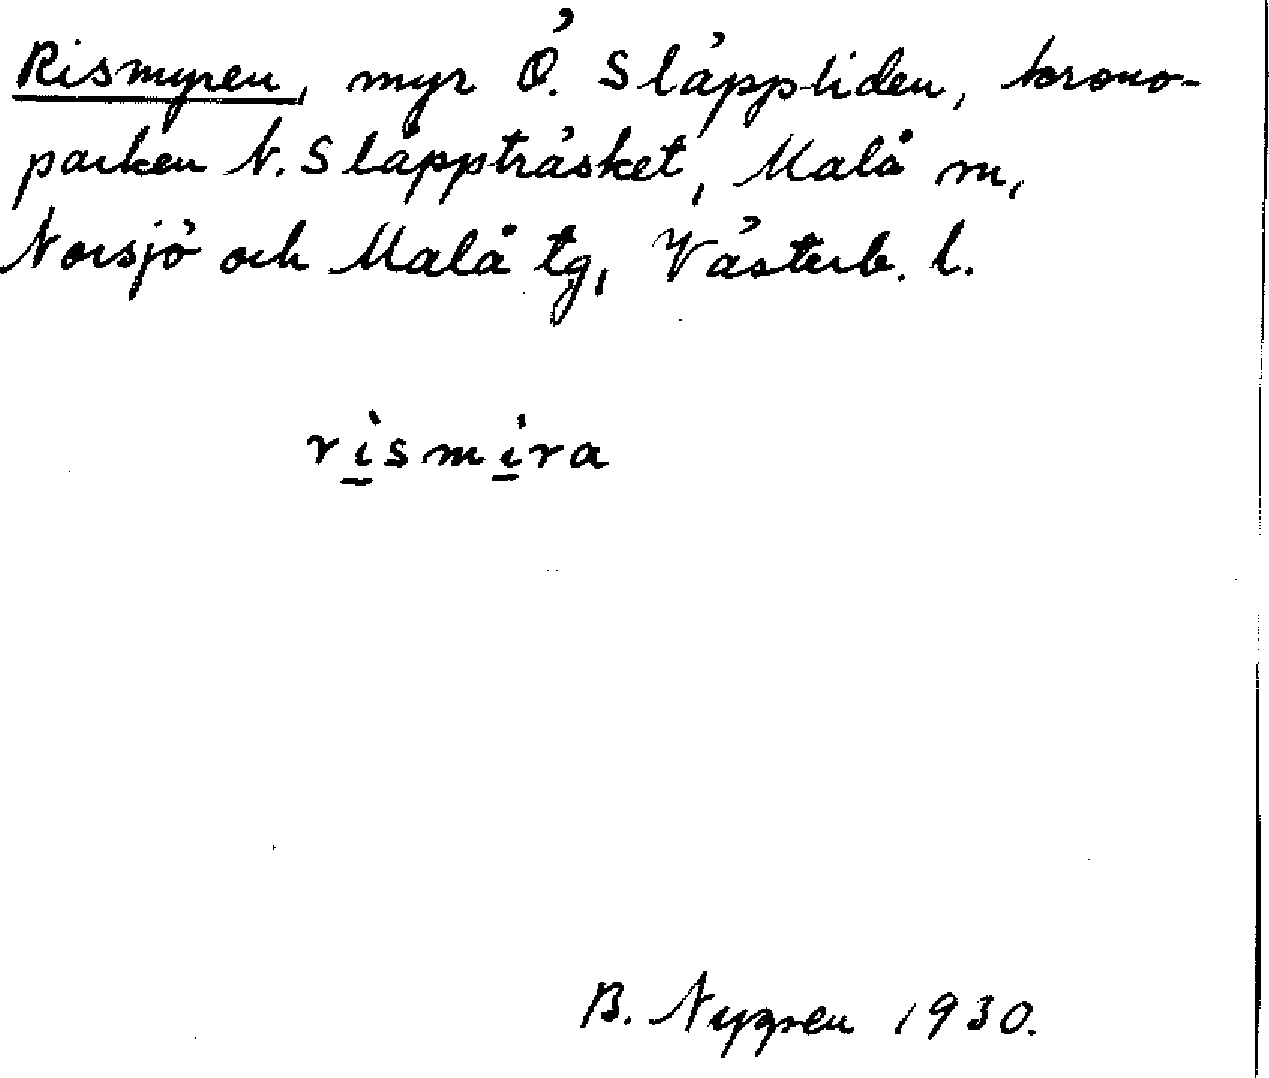 Rismyren, myr Ö. Släppliden, krono-
parken N. Släppträsket, Malå m,
Norsjö och Malå tg, Västerb. l.
rìsmìra
B. Nygren 1930.